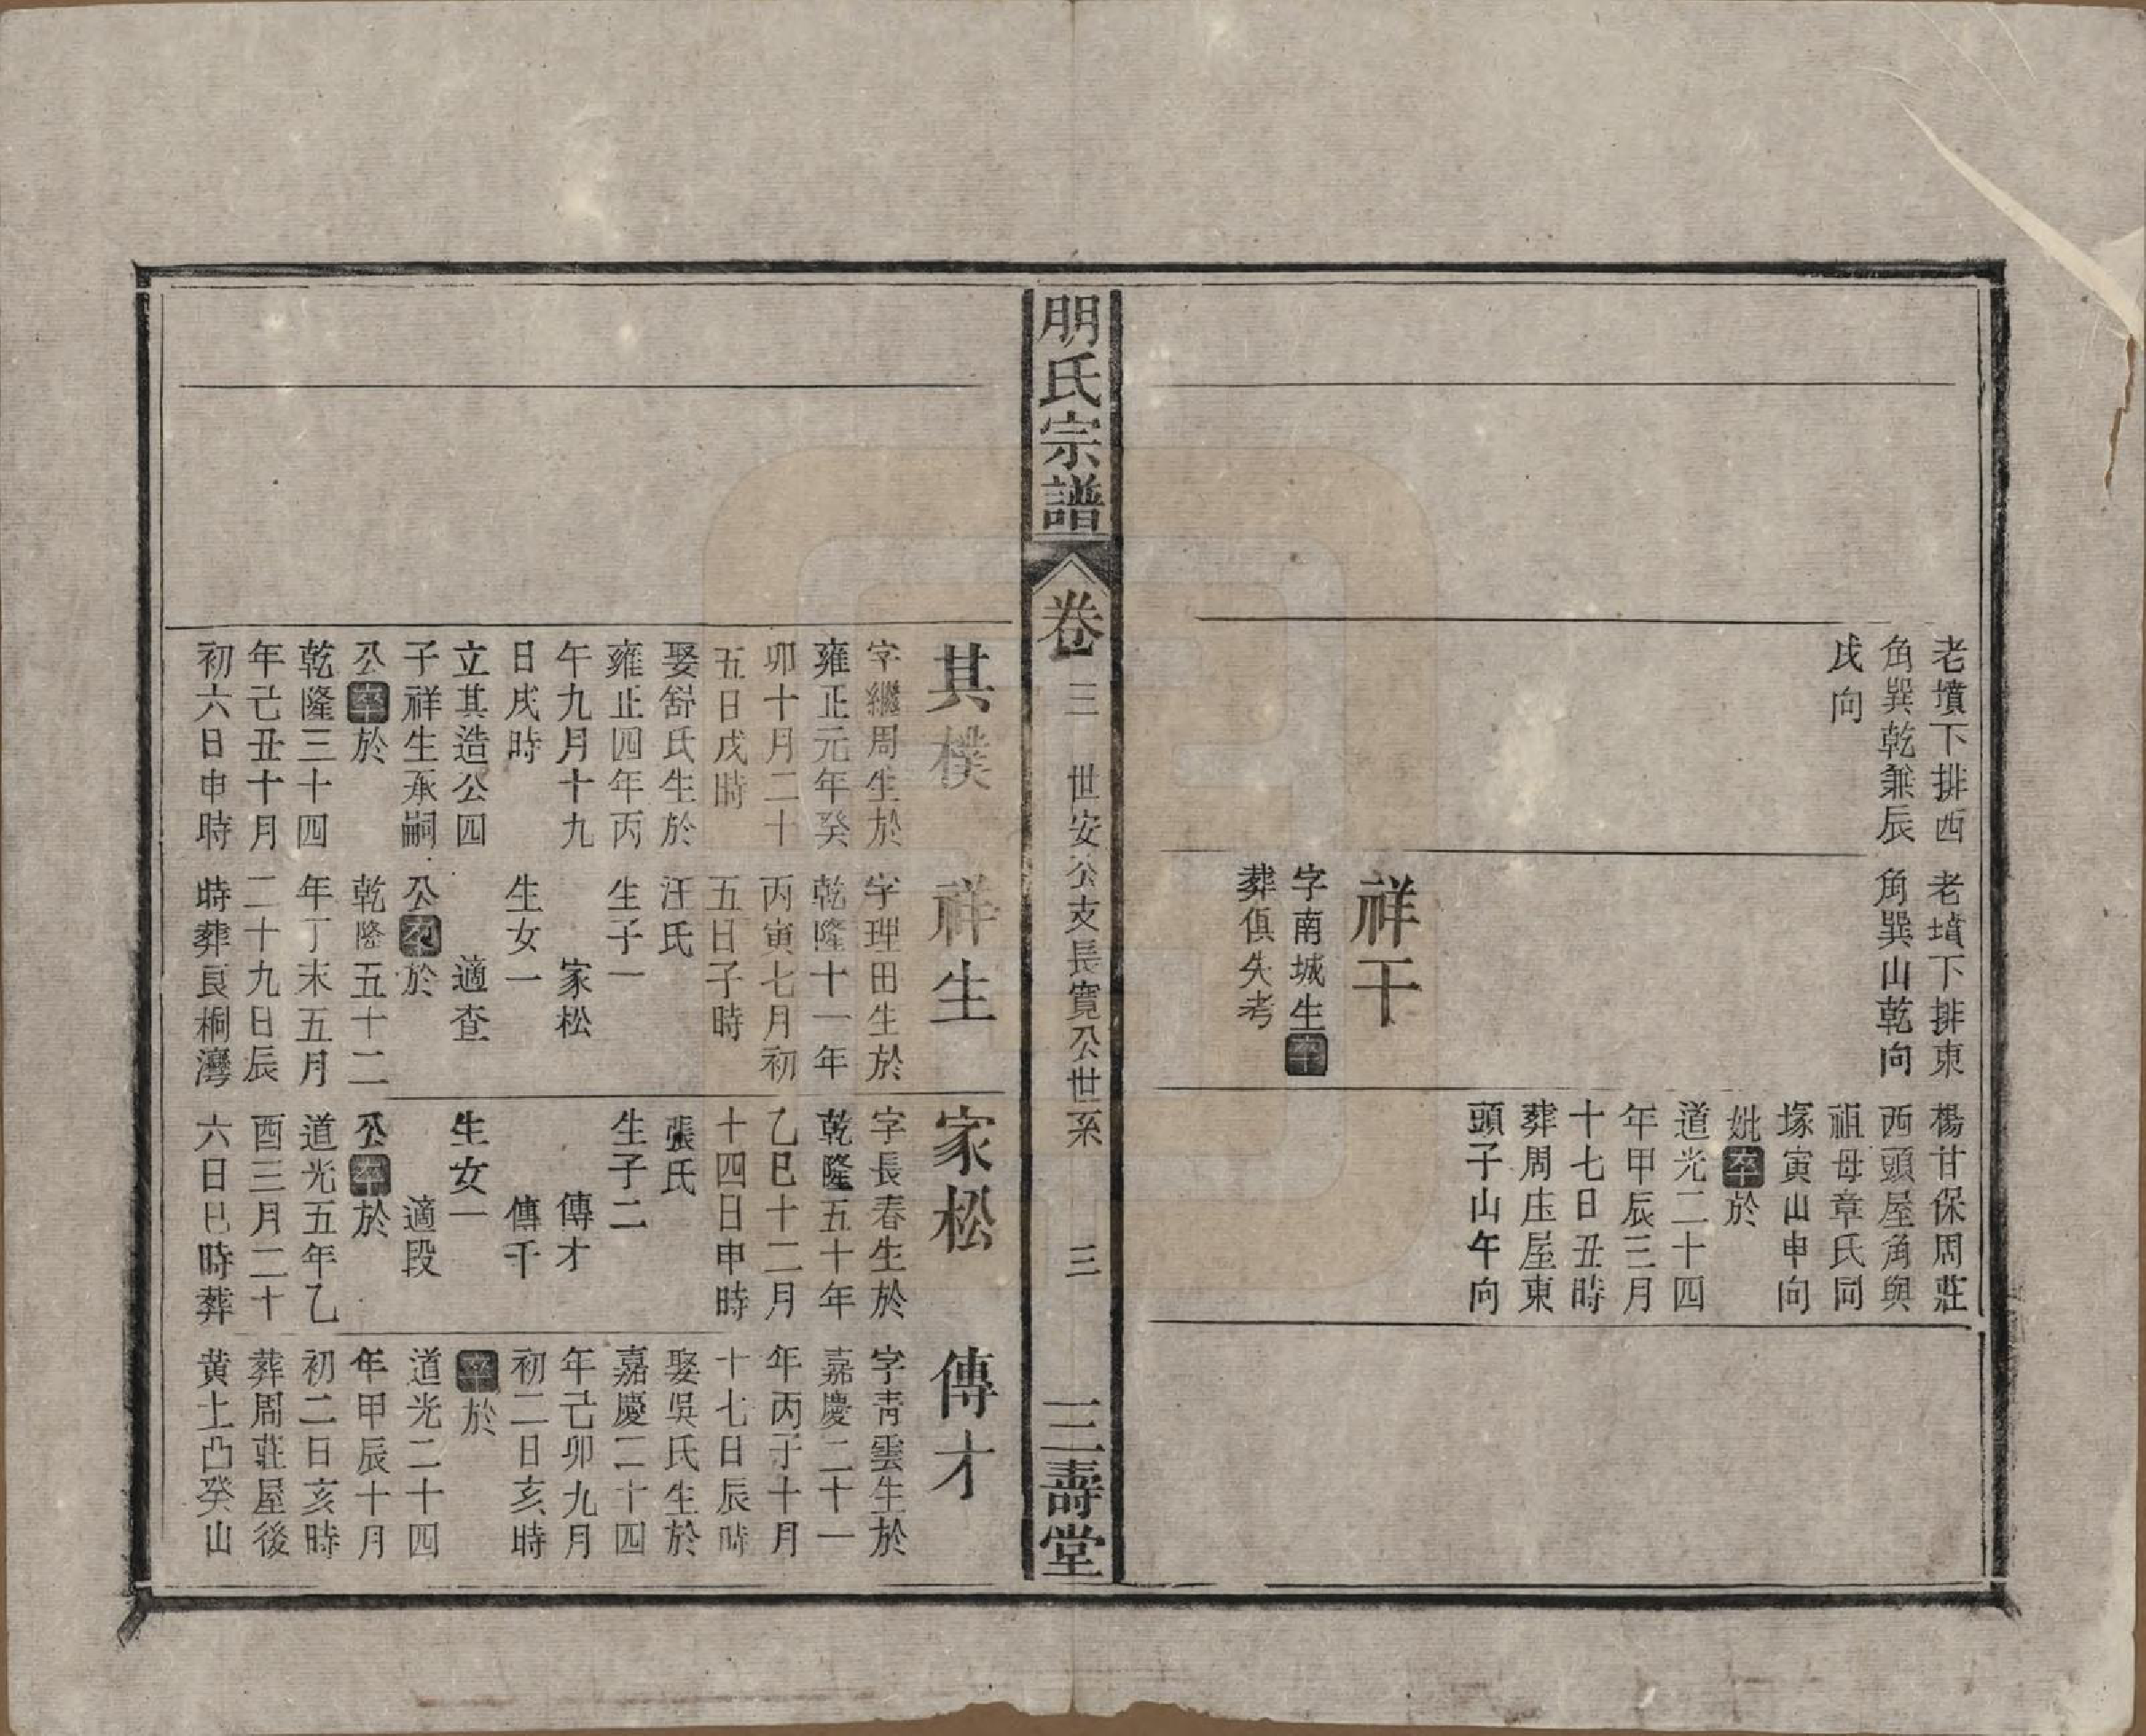 老墳下排西
角巽乾兼辰
戌向
老墳下排東
角巽山乾向
祥干
字南城生卒
葬俱失考
楊甘保周莊
西頭屋角與
祖母章氏同
塚寅山申向
妣卒於
道光二十四
年甲辰三月
十七日丑時
葬周庄屋東
頭子山午向
朋氏宗譜
卷三
世安公支長寬公世系
三
三壽堂
其樸
字繼周生於
雍正元年癸
卯十月二十
五日戌時
娶舒氏生於
雍正四年丙
午九月十九
日戌時
立其造公四
子祥生承嗣
公卒於
乾隆三十四
年己丑十月
初六日申時
祥生
字理田生於
乾隆十一年
丙寅七月初
五日子時
汪氏
生子一
家松
生女一
適查
公卒於
乾隆五十二
年丁未五月
二十九日辰
時葬良桐灣
家松
字長春生於
乾隆五十年
乙巳十二月
十四日申時
張氏
生子二
傳才
傳千
生女一
適段
公卒於
道光五年乙
酉三月二十
六日巳時葬
傳才
字青雲生於
嘉慶二十一
年丙子十月
十七日辰時
娶吳氏生於
嘉慶二十四
年己卯九月
初二日亥時
卒於
道光二十四
年甲辰十月
初二日亥時
葬周莊屋後
黄土凸癸山